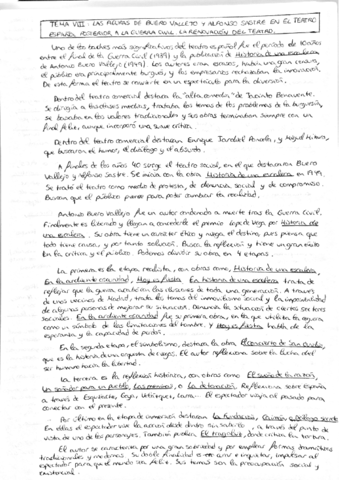 TEMA VII: LAS FIGURAS DE BUERO VALLEJO Y ALFONSO SASTRE EN EL TEATRO
ESPAÑOL POSTERIOR A LA GUERRA CIVIL. LA RENOVACIÓN DEL TEATRO.
Uno de los cambios más significativos del teatro español fue el período de 10 años
entre el final de la Guerra Civil (1939) y la publicación de Historia de una escalera
de Antonio Buero Vallejo (1949). Los autores eran escasos, había una gran censura,
el público era principalmente burgués, y los empresarios rechazaban la innovación.
De esta forma el teatro se convierte en un espectáculo para la diversión.
Dentro del teatro comercial destaca la "alta comedia" de Jacinto Benavente.
Se dirigía a las clases medias, trataba los temas de los problemas de la burguesía,
se basaba en los valores tradicionales y sus obras terminaban siempre con un
final feliz, aunque incorporó una suave crítica.
Dentro del teatro comercial destacaron Enrique Jardiel Poncela, y Miguel Mihura,
que buscaron el humor, el diálogo y el absurdo.
A finales de los años 40 surge el teatro social, en el que destacaron Buero
Vallejo y Alfonso Sastre. Se inicia con la obra Historia de una escalera en 1949.
Se trató el teatro como medio de protesta, de denuncia social y de compromiso.
Buscan que el público piense para poder cambiar la realidad.
Antonio Buero Vallejo fue un autor condenado a muerte tras la Guerra Civil.
Finalmente es liberado y llega a conceder el premio Lope de Vega por Historia de
una escalera. Su obra tiene un carácter ético y niega el destino, pues piensa que
todo tiene causa, y por tanto solución. Busca la reflexión y tiene un gran éxito
en la crítica y el público. Podemos dividir su obra en 4 etapas.
La primera es la etapa realista, con obras como, Historia de una escalera,
En la ardiente oscuridad, Hoy es fiesta. En historia de una escalera trata de
reflejar que la guerra acabó con las ilusiones de toda una generación. A través
de unos vecinos de Madrid, trata los temas del inmovilismo social y la imposibilidad
de algunas personas de mejorar su situación. Denuncia la situación de ciertos sectores
sociales. En la ardiente oscuridad fue su primera obra, en la que utiliza la ceguera
como un símbolo de las limitaciones del hombre. Y Hoy es fiesta habla de la
esperanza y la capacidad de perdón.
En la segunda etapa, el simbolismo, destaca la obra El concierto de San Ovidio,
que es la historia de una orquesta de ciegos. El autor reflexiona sobre la lucha del
ser humano hacia la libertad.
La tercera es la reflexión histórica, con obras como El sueño de la razón,
Un soñador para un pueblo, Las meninas, o La detonación. Reflexiona sobre España
a través de Esquilache, Goya, Velázquez, Larra. El espectador viaja al pasado para
conectar con el presente.
Por último en la etapa de inmersión destacan La fundación,
En ellas el espectador vive la acción desde dentro del a través del punto de
vista de uno de los personajes. También publica El tragaluz, donde critica la tortura.
El autor se caracteriza por una gran sobriedad y por emplear formas dramáticas
tradicionales y modernas. Su doble finalidad es inquietar, impulsar al
espectador para que el mundo sea feliz. Sus temas son la preocupación social y
existencial.